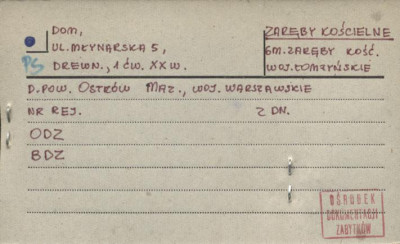 DOM,
UL. MŁYNARSKA 5,
PS DREWN., 1 ĆW. XX W.
ZARĘBY KOŚCIELNE
GM. ZARĘBY KOŚC.
WOJ. ŁOMŻYŃSKIE
D. POW. OSTRÓW MAZ., WOJ. WARSZAWSKIE
NR REJ. Z DN.
ODZ
BDZ
OŚRODEK
DOKUMENTACJI
ZABYTKÓW